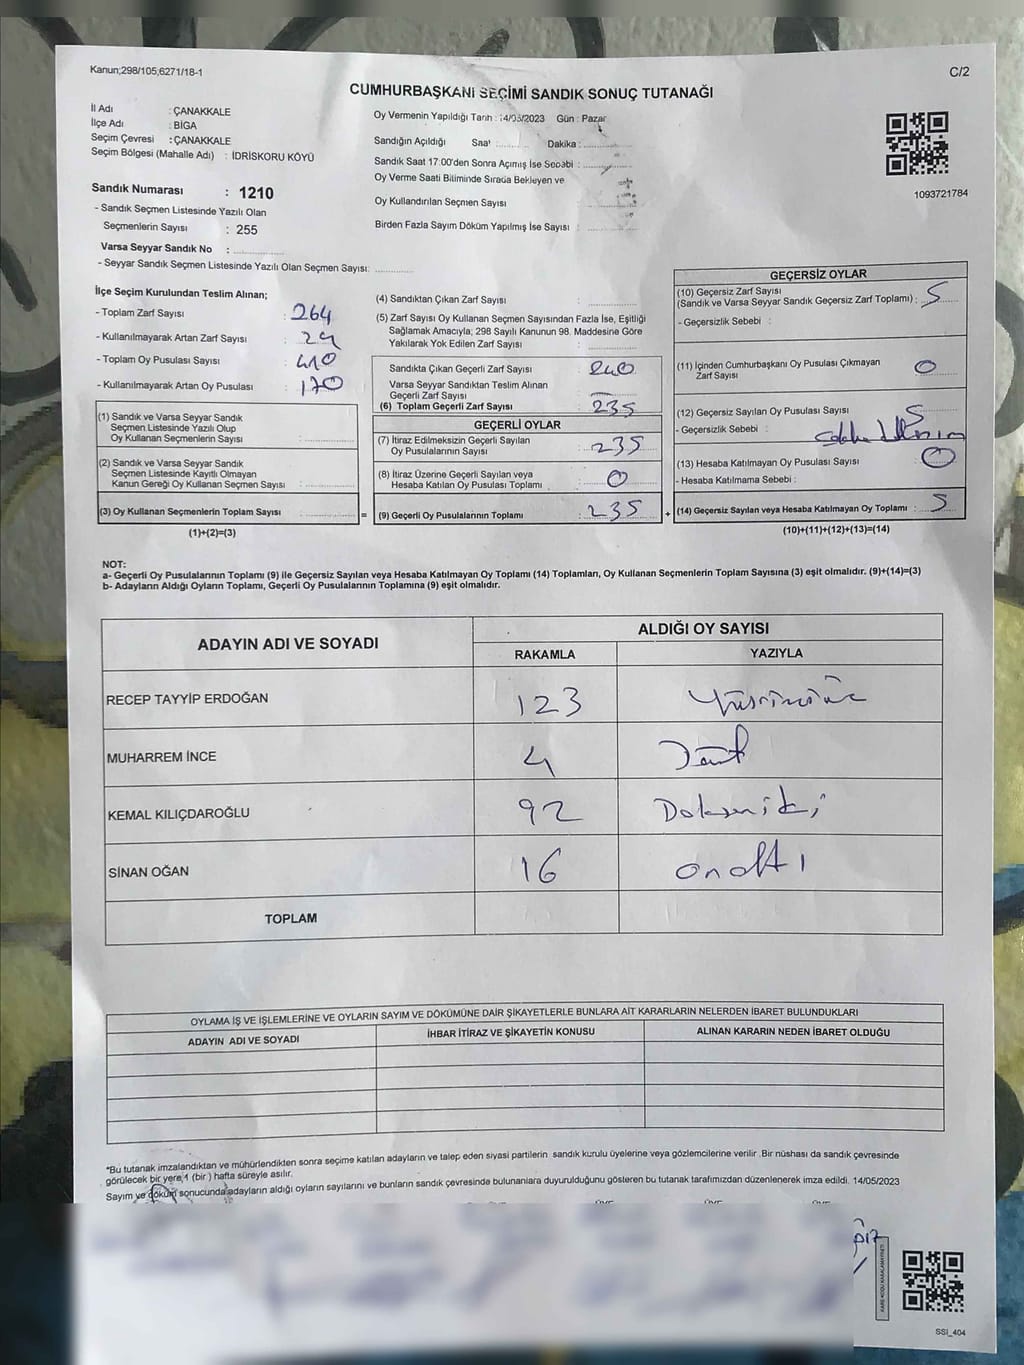 Kanun;298/105,6271/18-1
C/2
CUMHURBAŞKANI SEÇİMİ SANDIK SONUÇ TUTANAĞI
İl Adı : ÇANAKKALE
İlçe Adı : BİGA
Seçim Çevresi : ÇANAKKALE
Seçim Bölgesi (Mahalle Adı) : İDRİSKORU KÖYÜ
Oy Vermenin Yapıldığı Tarih : 14/05/2023 Gün : Pazar
Sandığın Açıldığı Saat Dakika :
Sandık Saat 17:00'den Sonra Açımış İse Sebabi :
Oy Verme Saati Bitiminde Sırada Bekleyen ve
Oy Kullandırılan Seçmen Sayısı :
Birden Fazla Sayım Döküm Yapılmış İse Sayısı :
1093721784
Sandık Numarası : 1210
- Sandık Seçmen Listesinde Yazılı Olan
Seçmenlerin Sayısı : 255
Varsa Seyyar Sandık No :
- Seyyar Sandık Seçmen Listesinde Yazılı Olan Seçmen Sayısı:
İlçe Seçim Kurulundan Teslim Alınan;
- Toplam Zarf Sayısı : 264
- Kullanılmayarak Artan Zarf Sayısı : 24
- Toplam Oy Pusulası Sayısı : 410
- Kullanılmayarak Artan Oy Pusulası : 170
(1) Sandık ve Varsa Seyyar Sandık
Seçmen Listesinde Yazılı Olup
Oy Kullanan Seçmenlerin Sayısı :
(2) Sandık ve Varsa Seyyar Sandık
Seçmen Listesinde Kayıtlı Olmayan
Kanun Gereği Oy Kullanan Seçmen Sayısı :
(3) Oy Kullanan Seçmenlerin Toplam Sayısı :
(1)+(2)=(3)
(4) Sandıktan Çıkan Zarf Sayısı :
(5) Zarf Sayısı Oy Kullanan Seçmen Sayısından Fazla İse, Eşitliği
Sağlamak Amacıyla; 298 Sayılı Kanunun 98. Maddesine Göre
Yakılarak Yok Edilen Zarf Sayısı :
Sandıkta Çıkan Geçerli Zarf Sayısı : 240
Varsa Seyyar Sandıktan Teslim Alınan
Geçerli Zarf Sayısı :
(6) Toplam Geçerli Zarf Sayısı : 235
GEÇERLİ OYLAR
(7) İtiraz Edilmeksizin Geçerli Sayılan
Oy Pusulalarının Sayısı : 235
(8) İtiraz Üzerine Geçerli Sayılan veya
Hesaba Katılan Oy Pusulası Toplamı : 0
= (9) Geçerli Oy Pusulalarının Toplamı : 235 +
GEÇERSİZ OYLAR
(10) Geçersiz Zarf Sayısı
(Sandık ve Varsa Seyyar Sandık Geçersiz Zarf Toplamı) : 5
- Geçersizlik Sebebi :
(11) İçinden Cumhurbaşkanı Oy Pusulası Çıkmayan
Zarf Sayısı : 0
(12) Geçersiz Sayılan Oy Pusulası Sayısı : 5
- Geçersizlik Sebebi :
(13) Hesaba Katılmayan Oy Pusulası Sayısı : 0
- Hesaba Katılmama Sebebi :
(14) Geçersiz Sayılan veya Hesaba Katılmayan Oy Toplamı : 5
(10)+(11)+(12)+(13)=(14)
NOT:
a- Geçerli Oy Pusulalarının Toplamı (9) ile Geçersiz Sayılan veya Hesaba Katılmayan Oy Toplamı (14) Toplamları, Oy Kullanan Seçmenlerin Toplam Sayısına (3) eşit olmalıdır. (9)+(14)=(3)
b- Adayların Aldığı Oyların Toplamı, Geçerli Oy Pusulalarının Toplamına (9) eşit olmalıdır.
ADAYIN ADI VE SOYADI
ALDIĞI OY SAYISI
RAKAMLA YAZIYLA
RECEP TAYYİP ERDOĞAN 123 Yüzyirmiüç
MUHARREM İNCE 4 Dört
KEMAL KILIÇDAROĞLU 92 Doksaniki
SİNAN OĞAN 16 onaltı
TOPLAM
OYLAMA İŞ VE İŞLEMLERİNE VE OYLARIN SAYIM VE DÖKÜMÜNE DAİR ŞİKAYETLERLE BUNLARA AİT KARARLARIN NELERDEN İBARET BULUNDUKLARI
ADAYIN ADI VE SOYADI İHBAR İTİRAZ VE ŞİKAYETİN KONUSU ALINAN KARARIN NEDEN İBARET OLDUĞU
*Bu tutanak imzalandıktan ve mühürlendikten sonra seçime katılan adayların ve talep eden siyasi partilerin sandık kurulu üyelerine veya gözlemcilerine verilir .Bir nüshası da sandık çevresinde
görülecek bir yere 1 (bir ) hafta süreyle asılır.
Sayım ve döküm sonucunda adayların aldığı oyların sayılarını ve bunların sandık çevresinde bulunanlara duyurulduğunu gösteren bu tutanak tarafımızdan düzenlenerek imza edildi. 14/05/2023
SSI_404